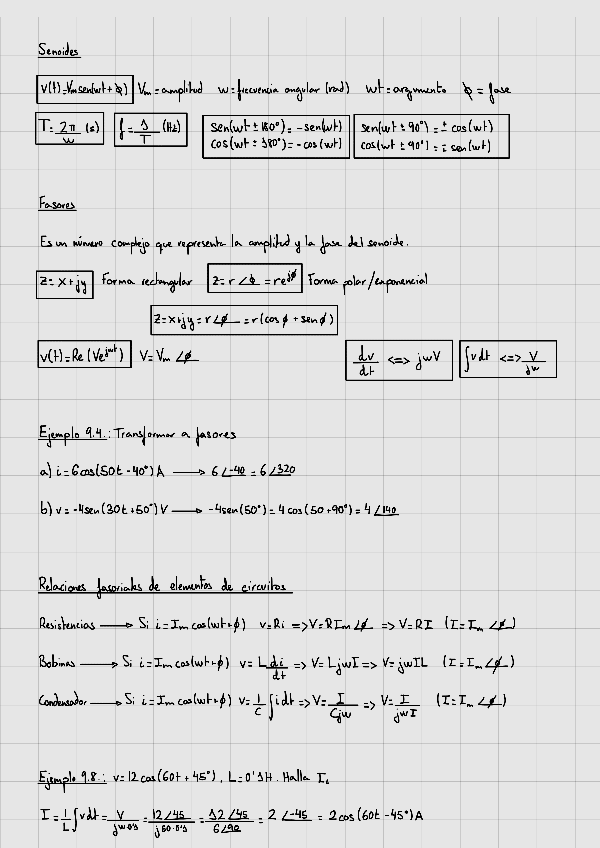 Senoides
v(t)=Vm sen(wt+φ) Vm=amplitud w=frecuencia angular (rad) wt=argumento φ=fase
T=2π/w (s) f=1/T (Hz) sen(wt±180°)=-sen(wt) sen(wt±90°)=±cos(wt)
cos(wt±180°)=-cos(wt) cos(wt±90°)=∓sen(wt)
Fasores
Es un número complejo que representa la amplitud y la fase del senoide.
z=x+jy Forma rectangular z=r∠φ=re^jφ Forma polar/exponencial
z=x+jy=r∠φ=r(cosφ+senφ)
v(t)=Re(Ve^jwt) V=Vm∠φ dv/dt <=> jwV ∫vdt <=> V/jw
Ejemplo 9.4.: Transformar a fasores
a) i=6cos(50t-40°)A → 6∠-40=6∠320
b) v=-4sen(30t+50°)V → -4sen(50°)=4cos(50+90°)=4∠140
Relaciones fasoriales de elementos de circuitos
Resistencias → Si i=Im cos(wt+φ) v=Ri =>V=RIm∠φ => V=RI (I=Im∠φ)
Bobinas → Si i=Im cos(wt+φ) v=L di/dt => V=LjwI => V=jwIL (I=Im∠φ)
Condensador → Si i=Im cos(wt+φ) v=1/C ∫idt => V=I/Cjw => V=I/jwI (I=Im∠φ)
Ejemplo 9.8.: v=12cos(60t+45°), L=0'1H. Halla I.
I=1/L ∫vdt=V/jw0'1=12∠45/j60·0'1=12∠45/6∠90=2∠-45=2cos(60t-45°)A